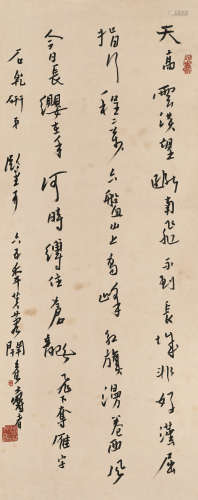 天高雲淡望斷南飛不到長城非好漢屈
指行程二萬六盤山上高峰紅旗漫卷西風
今日長纓在手何時縛住蒼龍 飛下奪雁字
石乾 弟 六五年芙蓉開